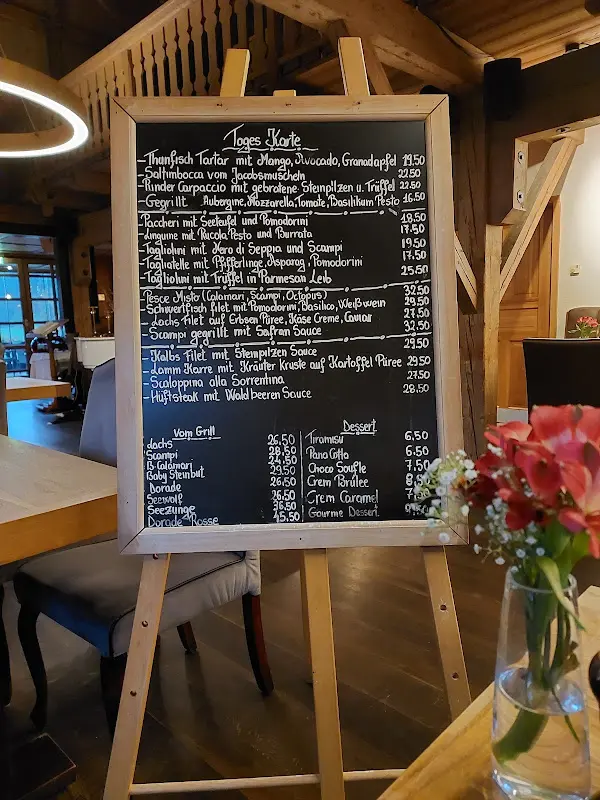 Tages Karte
- Thunfisch Tartar mit Mango, Avocado, Granadapfel 19,50
- Saltimbocca vom Jacobsmuscheln 22.50
- Rinder Carpaccio mit gebratene Steinpilzen u. Trüffel 22.50
- Gegrillt Aubergine, Mozzarella, Tomate, Basilikum Pesto 16.50
- Paccheri mit Seeteufel und Pomodorini 18.50
- Linguine mit Rucola Pesto und Burrata 17.50
- Tagliolini mit Nero di Seppia und Scampi 19.50
- Tagliatelle mit Pfifferlinge, Asparag, Pomodorini 17.50
- Tagliolini mit Trüffel in Parmesan Leib 25.50
- Pesce Misto (Calamari, Scampi, Octopus) 32.50
- Schwertfisch filet mit Pomodorini, Basilico, Weißwein 29,50
- Lachs Filet auf Erbsen Püree, Käse Creme, Caviar 27.50
- Scampi gegrillt mit Safran Sauce 32.50
- Kalbs Filet mit Steinpilzen Sauce 29.50
- Lamm Karre mit Kräuter Kruste auf Kartoffel Püree 29.50
- Scaloppina alla Sorrentina 27.50
- Hüftsteak mit Waldbeeren Sauce 28.50
Vom Grill
Lachs 26,50
Scampi 28,50
B. Calamari 24,50
Baby Steinbut 29,50
Dorade 26,50
Seewolf 26,50
Seezunge 36,50
Dorade Rosse 45,50
Dessert
Tiramisu 6,50
Pana Cotta 6,50
Choco Soufle 7,50
Crem Brulee
Crem Caramel
Gourme Dessert